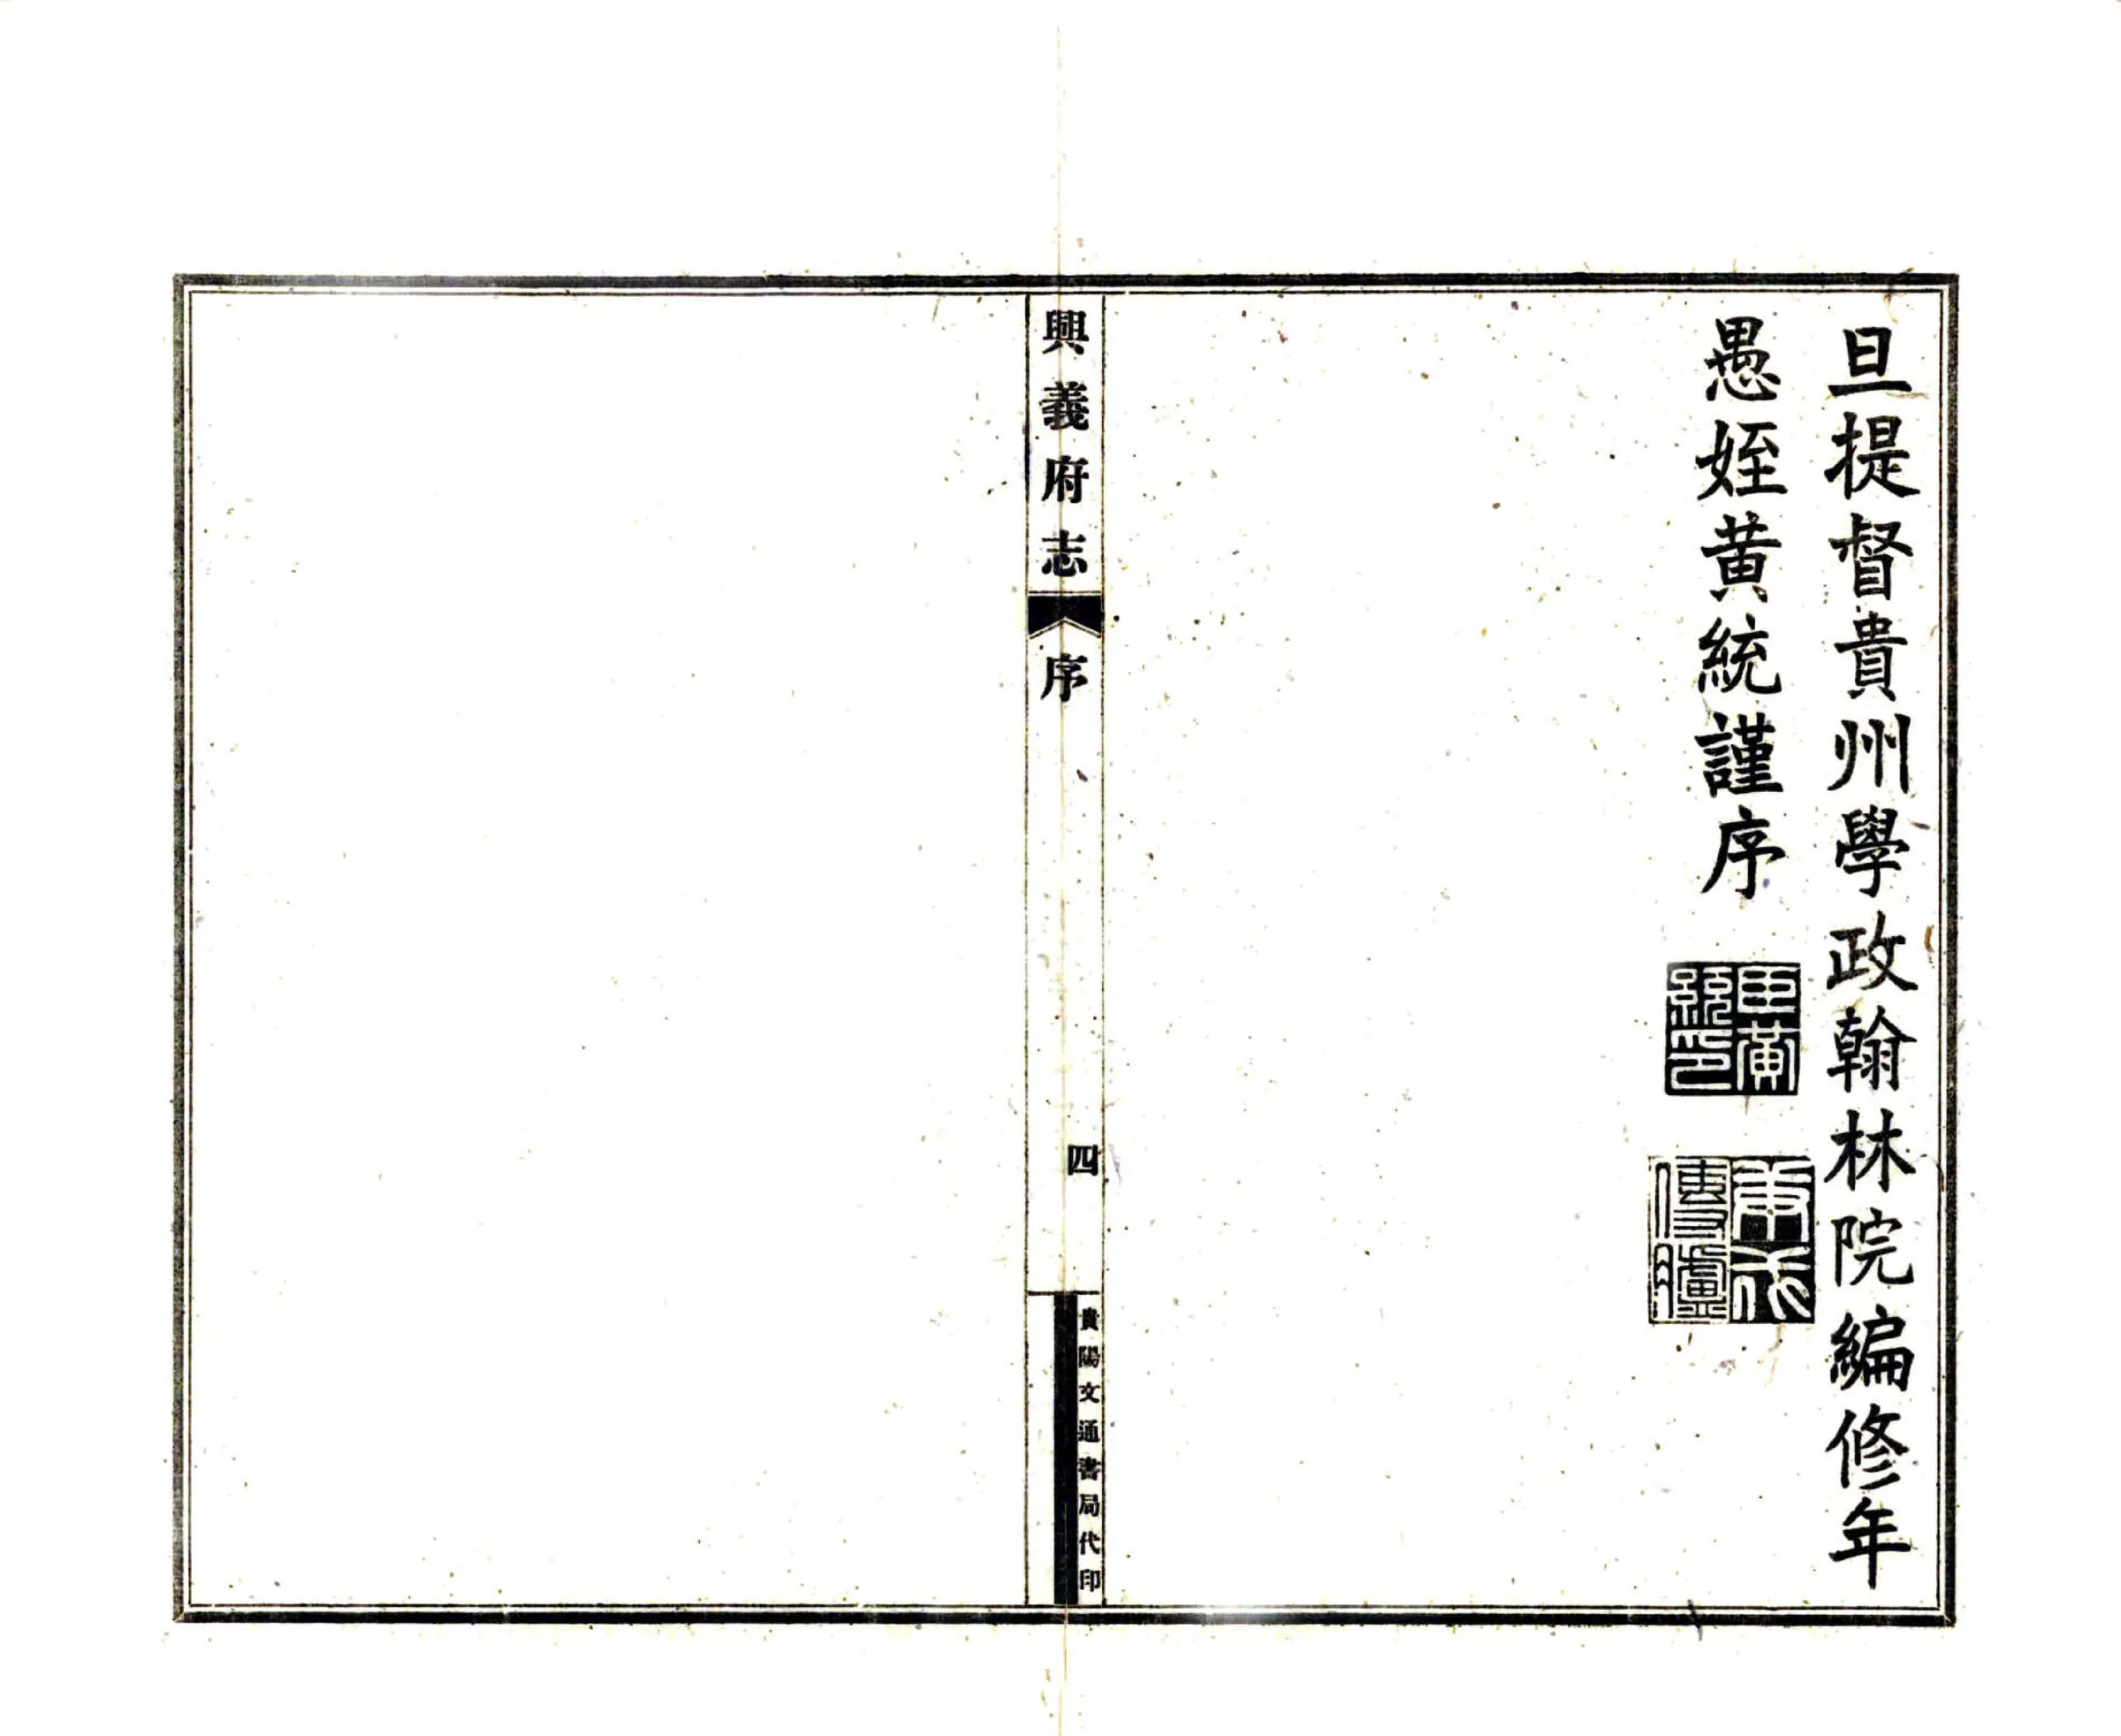 旦提督貴州學政翰林院編修年
愚姪黄統謹序
臣黃統印
傳臚
興義府志
序
四
貴陽文通書局代印